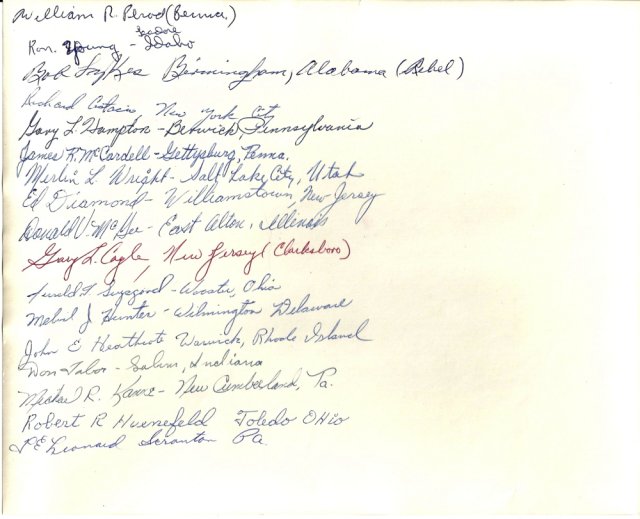 William R. Perod (Penna.)
Isadore
Ron. Young - Idaho
Bob Sykes Birmingham, Alabama (Rebel)
Richard New York City
Gary L. Hampton - Berwick, Pennsylvania
James K. McCardell - Gettysburg, Penna.
Merlin L Wright - Salt Lake City, Utah
Ed Diamond - Williamstown, New Jersey
Donald V. McGee - East Alton, Illinois
Gary L. Cagle, New Jersey (Clarksboro)
- Wooster, Ohio
J Hunter - Wilmington Delaware
John E Heathcote Warwick, Rhode Island
Don Tabor - Salem, Indiana
Michael R. Karne - New Cumberland, Pa.
Robert R Huenefeld Toledo OHio
Leonard Scranton Pa.